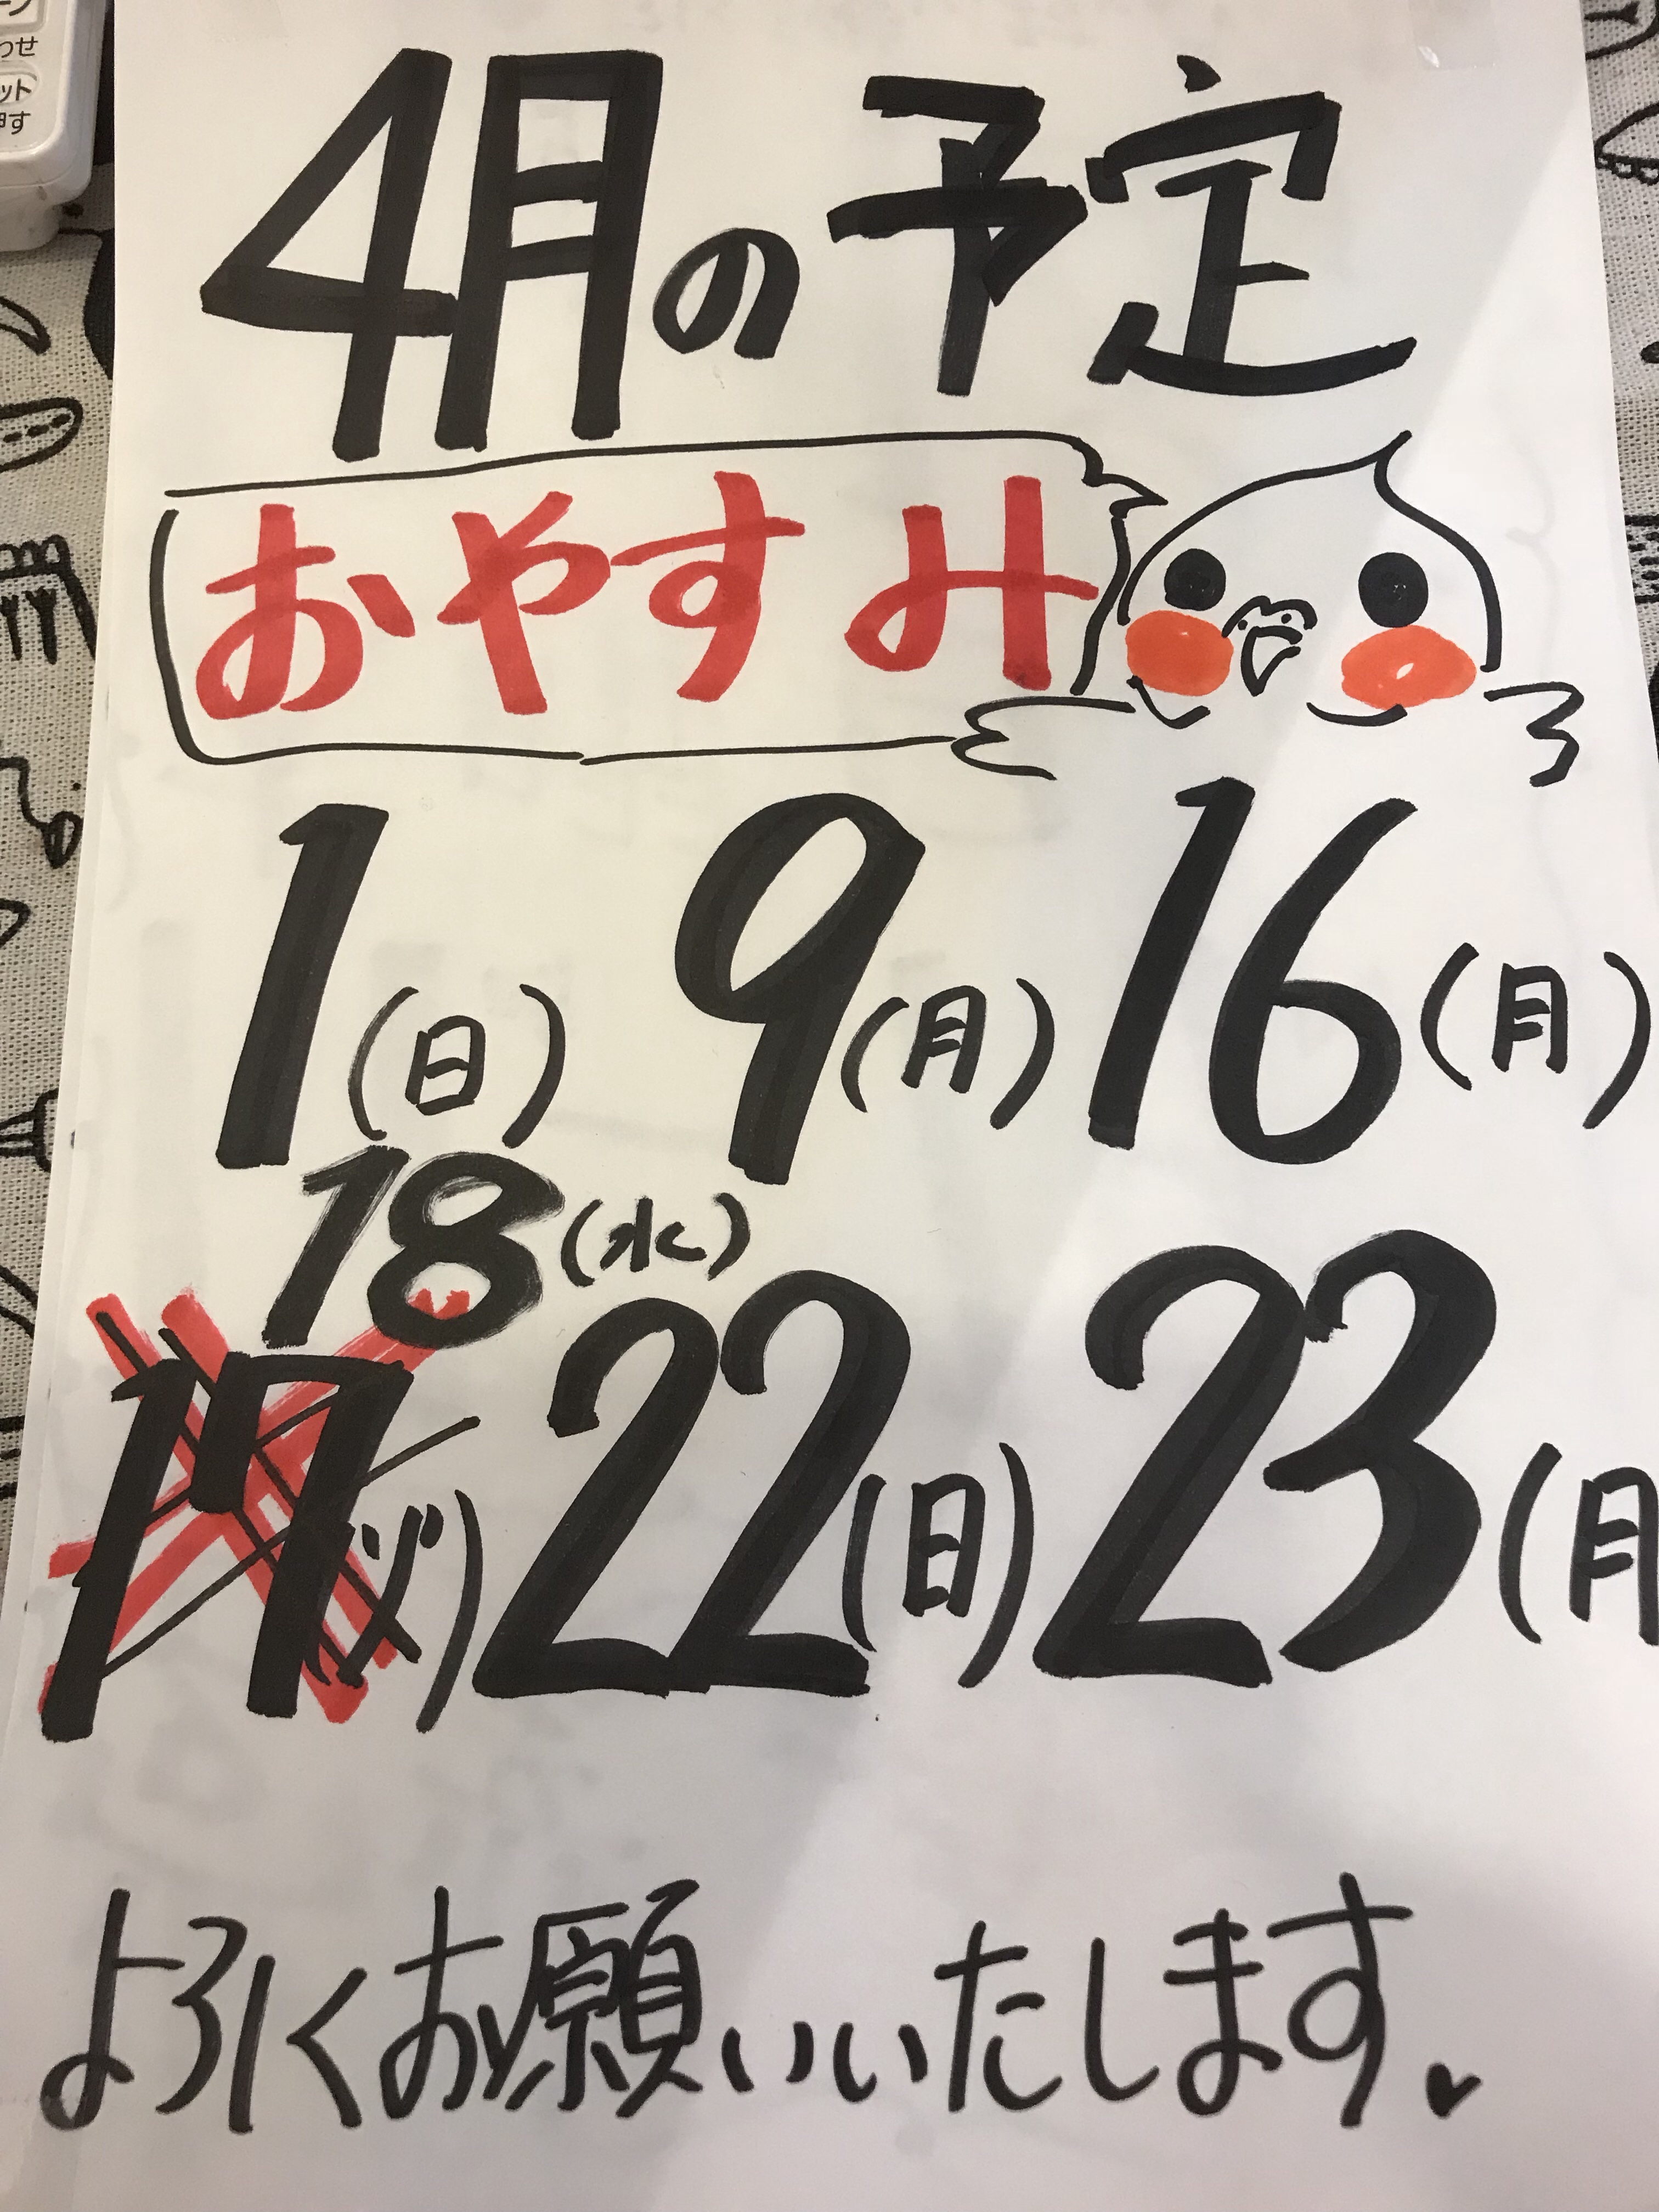 ーン
わせ
ット
押す
4月の予定
おやすみ
1(日) 9(月) 16(月)
18(水)
17 22(日) 23(月
よろしくお願いいたします